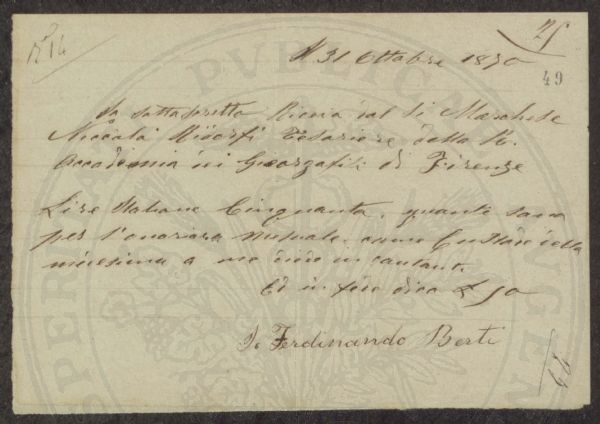 N° 14
25
49
A 31 Ottobre 1870
Io sottoscritto Ricevo dal Si Marchese
Niccolà Ridorfi Tesoriere della R.
Accademia dei Georgafili di Firenze
Lire Italiane Cinquanta, quanti sono
per l'onorario mensuale, come Custode della
medesima a me dovuto in contanti.
Ed in fede dico £ 50
Io Ferdinando Berti